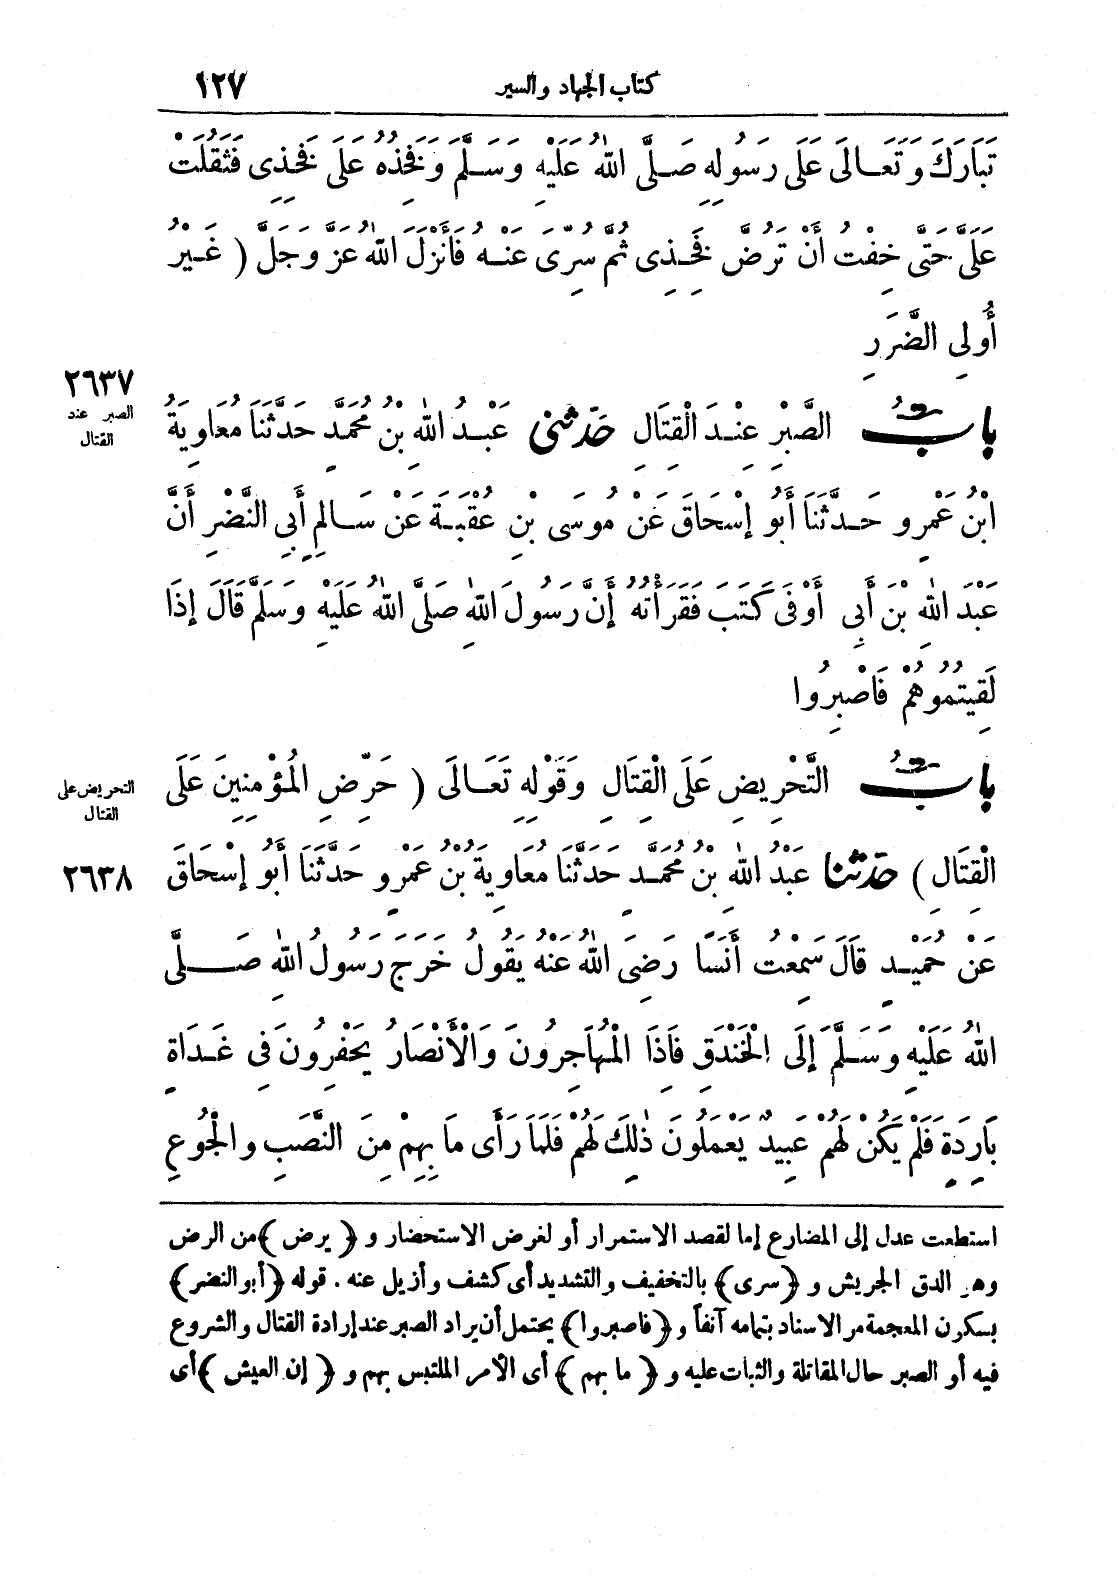 كتاب الجهاد والسير ١٢٧
تَبَارَكَ وَتَعَالَى عَلَى رَسُولِهِ صَلَّى اللهُ عَلَيْهِ وَسَلَّمَ وَفَخِذُهُ عَلَى فَخِذِى فَثَقُلَتْ
عَلَىَّ حَتَّى خِفْتُ أَنْ تَرُضَّ فَخِذِى ثُمَّ سُرِّىَ عَنْهُ فَأَنْزَلَ اللهُ عَزَّ وَجَلَّ ( غَيْرُ
أُولِى الضَّرَرِ
٢٦٣٧
الصبر عند
القتال
بابُ الصَّبْرِ عِنْدَ الْقِتَالِ حَدَّثَنِى عَبْدُ اللهِ بْنُ مُحَمَّدٍ حَدَّثَنَا مُعَاوِيَةُ
ابْنُ عَمْرٍو حَدَّثَنَا أَبُو إِسْحَاقَ عَنْ مُوسَى بْنِ عُقْبَةَ عَنْ سَالِمٍ أَبِى النَّضْرِ أَنَّ
عَبْدَ اللهِ بْنَ أَبِى أَوْفَى كَتَبَ فَقَرَأْتُهُ إِنَّ رَسُولَ اللهِ صَلَّى اللهُ عَلَيْهِ وَسَلَّمَ قَالَ إِذَا
لَقِيتُمُوهُمْ فَاصْبِرُوا
التحريض على
القتال
بابُ التَّحْرِيضِ عَلَى الْقِتَالِ وَقَوْلِهِ تَعَالَى ( حَرِّضِ الْمُؤْمِنِينَ عَلَى
٢٦٣٨
الْقِتَالِ ) حَدَّثَنَا عَبْدُ اللهِ بْنُ مُحَمَّدٍ حَدَّثَنَا مُعَاوِيَةُ بْنُ عَمْرٍو حَدَّثَنَا أَبُو إِسْحَاقَ
عَنْ حُمَيْدٍ قَالَ سَمِعْتُ أَنَسًا رَضِىَ اللهُ عَنْهُ يَقُولُ خَرَجَ رَسُولُ اللهِ صَلَّى
اللهُ عَلَيْهِ وَسَلَّمَ إِلَى الْخَنْدَقِ فَاِذَا الْمُهَاجِرُونَ وَالْأَنْصَارُ يَحْفِرُونَ فِى غَدَاةٍ
بَارِدَةٍ فَلَمْ يَكُنْ لَهُمْ عَبِيدٌ يَعْمَلُونَ ذٰلِكَ لَهُمْ فَلَمَّا رَأَى مَا بِهِمْ مِنَ النَّصَبِ وَالْجُوعِ
استطعت عدل إلى المضارع إما لقصد الاستمرار أو لغرض الاستحضار و ﴿ يرض ﴾ من الرض
وهو الدق الجريش و ﴿ سرى ﴾ بالتخفيف والتشديد أى كشف وأزيل عنه . قوله ﴿ أبو النضر ﴾
بسكون المعجمة مر الاسناد بتمامه آنفاً و ﴿ فاصبروا ﴾ يحتمل أن يراد الصبر عند إرادة القتال والشروع
فيه أو الصبر حال المقاتلة والثبات عليه و ﴿ ما بهم ﴾ أى الأمر الملتبس بهم و ﴿ إن العيش ﴾ أى